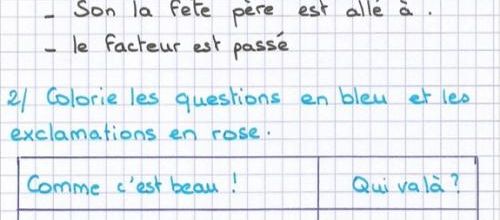 - Son la fete père est allé à .
- le facteur est passé
2/ Colorie les questions en bleu et les
exclamations en rose.
Comme c'est beau ! Qui va là ?